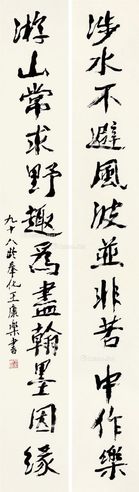 涉水不避風波並非苦中作樂
游山常求野趣爲盡翰墨因緣
九十八叟奉化王康樂書